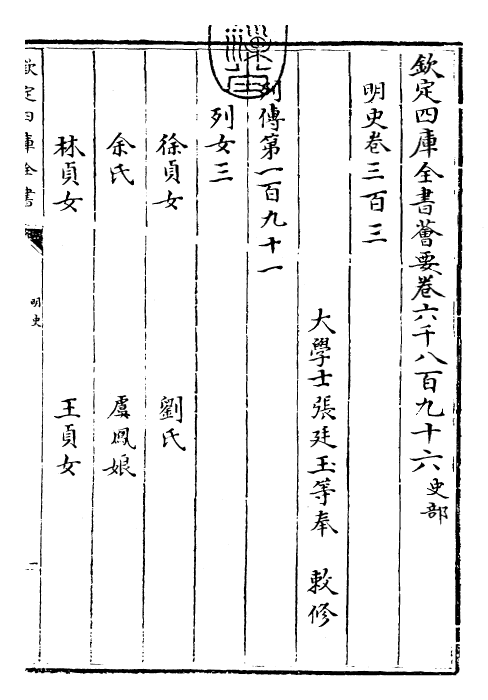 欽定四庫全書薈要卷六千八百九十六 史部
明史卷三百三
大學士張廷玉等奉 敕修
列傳第一百九十一
列女三
徐貞女 劉氏
余氏 虞鳳娘
林貞女 王貞女
欽定四庫全書
明史
一